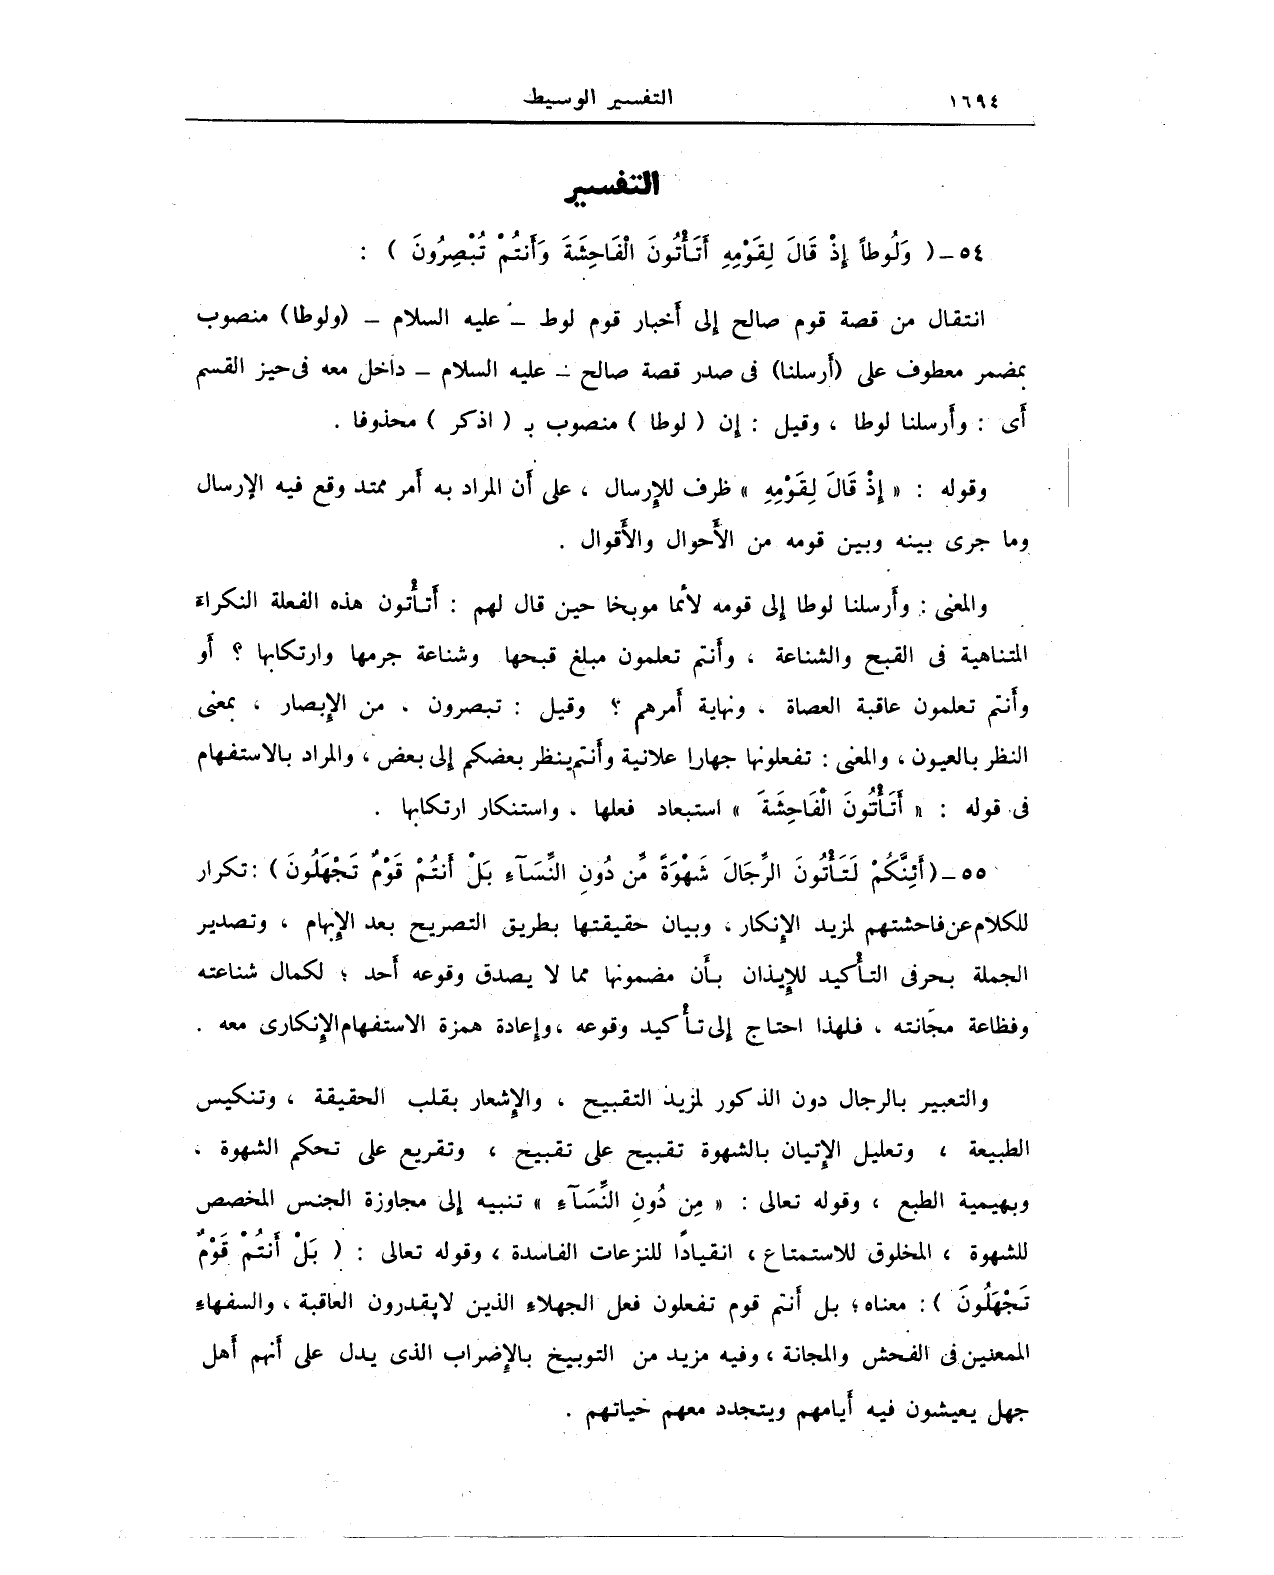 ١٦٩٤ التفسير الوسيط
التفسير
٥٤ – ( وَلُوطاً إِذْ قَالَ لِقَوْمِهِ أَتَأْتُونَ الْفَاحِشَةَ وَأَنتُمْ تُبْصِرُونَ ) :
انتقال من قصة قوم صالح إلى أخبار قوم لوط – عليه السلام – (ولوطا) منصوب
بمضمر معطوف على (أرسلنا) فى صدر قصة صالح – عليه السلام – داخل معه فى حيز القسم
أى : وأرسلنا لوطا ، وقيل : إن ( لوطا ) منصوب بـ ( اذكر ) محذوفا .
وقوله : « إِذْ قَالَ لِقَوْمِهِ » ظرف للإرسال ، على أن المراد به أمر ممتد وقع فيه الإرسال
وما جرى بينه وبين قومه من الأحوال والأقوال .
والمعنى : وأرسلنا لوطا إلى قومه لائما موبخا حين قال لهم : أتأْتون هذه الفعلة النكراء
المتناهية فى القبح والشناعة ، وأنتم تعلمون مبلغ قبحها وشناعة جرمها وارتكابها ؟ أو
وأنتم تعلمون عاقبة العصاة ، ونهاية أمرهم ؟ وقيل : تبصرون ، من الإبصار ، بمعنى
النظر بالعيون ، والمعنى : تفعلونها جهارا علانية وأنتم ينظر بعضكم إلى بعض ، والمراد بالاستفهام
فى قوله : « أَتَأْتُونَ الْفَاحِشَةَ » استبعاد فعلها ، واستنكار ارتكابها .
٥٥ – ( أَئِنَّكُمْ لَتَأْتُونَ الرِّجَالَ شَهْوَةً مِّن دُونِ النِّسَآءِ بَلْ أَنتُمْ قَوْمٌ تَجْهَلُونَ ) : تكرار
للكلام عن فاحشتهم لمزيد الإنكار ، وبيان حقيقتها بطريق التصريح بعد الإبهام ، وتصدير
الجملة بحرفى التأْكيد للإيذان بأَن مضمونها مما لا يصدق وقوعه أحد ؛ لكمال شناعته
وفظاعة مجانته ، فلهذا احتاج إلى تأْكيد وقوعه ، وإعادة همزة الاستفهام الإنكارى معه .
والتعبير بالرجال دون الذكور لمزيد التقبيح ، والإشعار بقلب الحقيقة ، وتنكيس
الطبيعة ، وتعليل الإتيان بالشهوة تقبيح على تقبيح ، وتقريع على تحكم الشهوة ،
وبهيمية الطبع ، وقوله تعالى : « مِن دُونِ النِّسَآءِ » تنبيه إلى مجاوزة الجنس المخصص
للشهوة ، المخلوق للاستمتاع ، انقيادًا للنزعات الفاسدة ، وقوله تعالى : ( بَلْ أَنتُمْ قَوْمٌ
تَجْهَلُونَ ) : معناه ؛ بل أنتم قوم تفعلون فعل الجهلاء الذين لايقدرون العاقبة ، والسفهاء
الممعنين فى الفحش والمجانة ، وفيه مزيد من التوبيخ بالإضراب الذى يدل على أنهم أهل
جهل يعيشون فيه أيامهم ويتجدد معهم حياتهم .